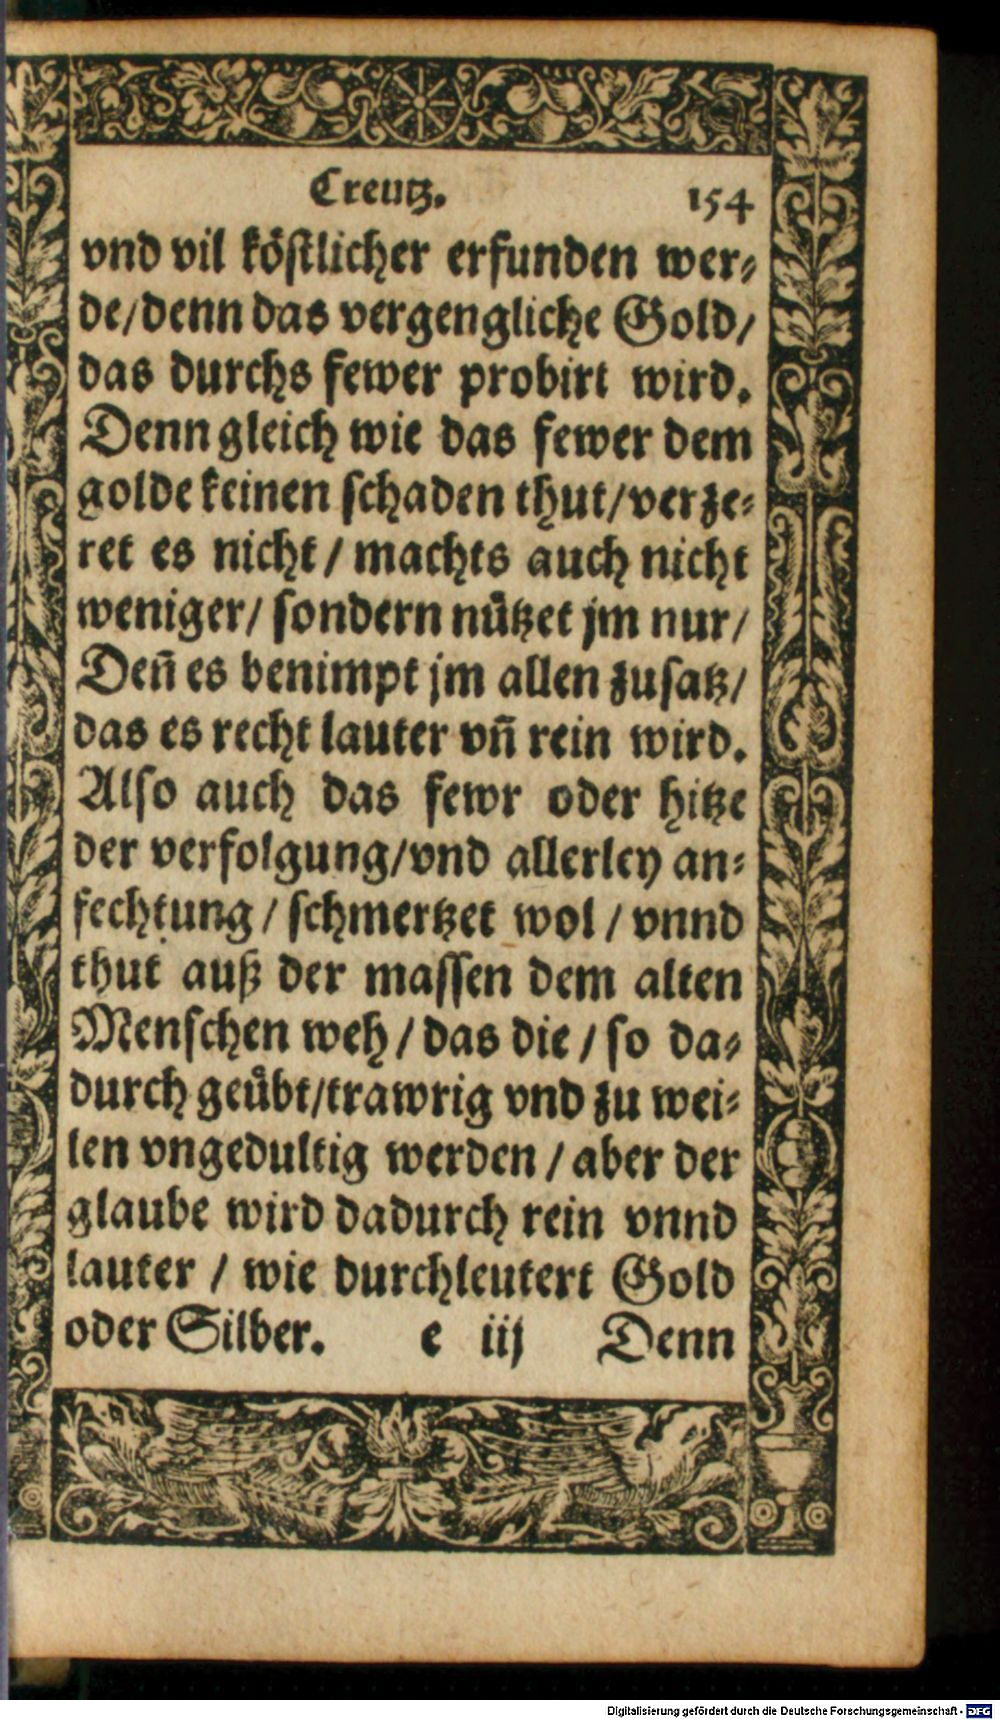 Creutz. 154
vnd vil köstlicher erfunden wer⸗
de/denn das vergengliche Gold/
das durchs fewer probirt wird.
Denn gleich wie das fewer dem
golde keinen schaden thut/verze⸗
ret es nicht/ machts auch nicht
weniger/ sondern nützet jm nur/
Deñ es benimpt jm allen zusatz/
das es recht lauter vñ rein wird.
Also auch das fewr oder hitze
der verfolgung/vnd allerley an⸗
fechtung/ schmertzet wol/ vnnd
thut auß der massen dem alten
Menschen weh/ das die/ so da⸗
durch geübt/trawrig vnd zu wei⸗
len vngedultig werden/ aber der
glaube wird dadurch rein vnnd
lauter/ wie durchleutert Gold
oder Silber. e iij Denn
Digitalisierung gefördert durch die Deutsche Forschungsgemeinschaft - DFG